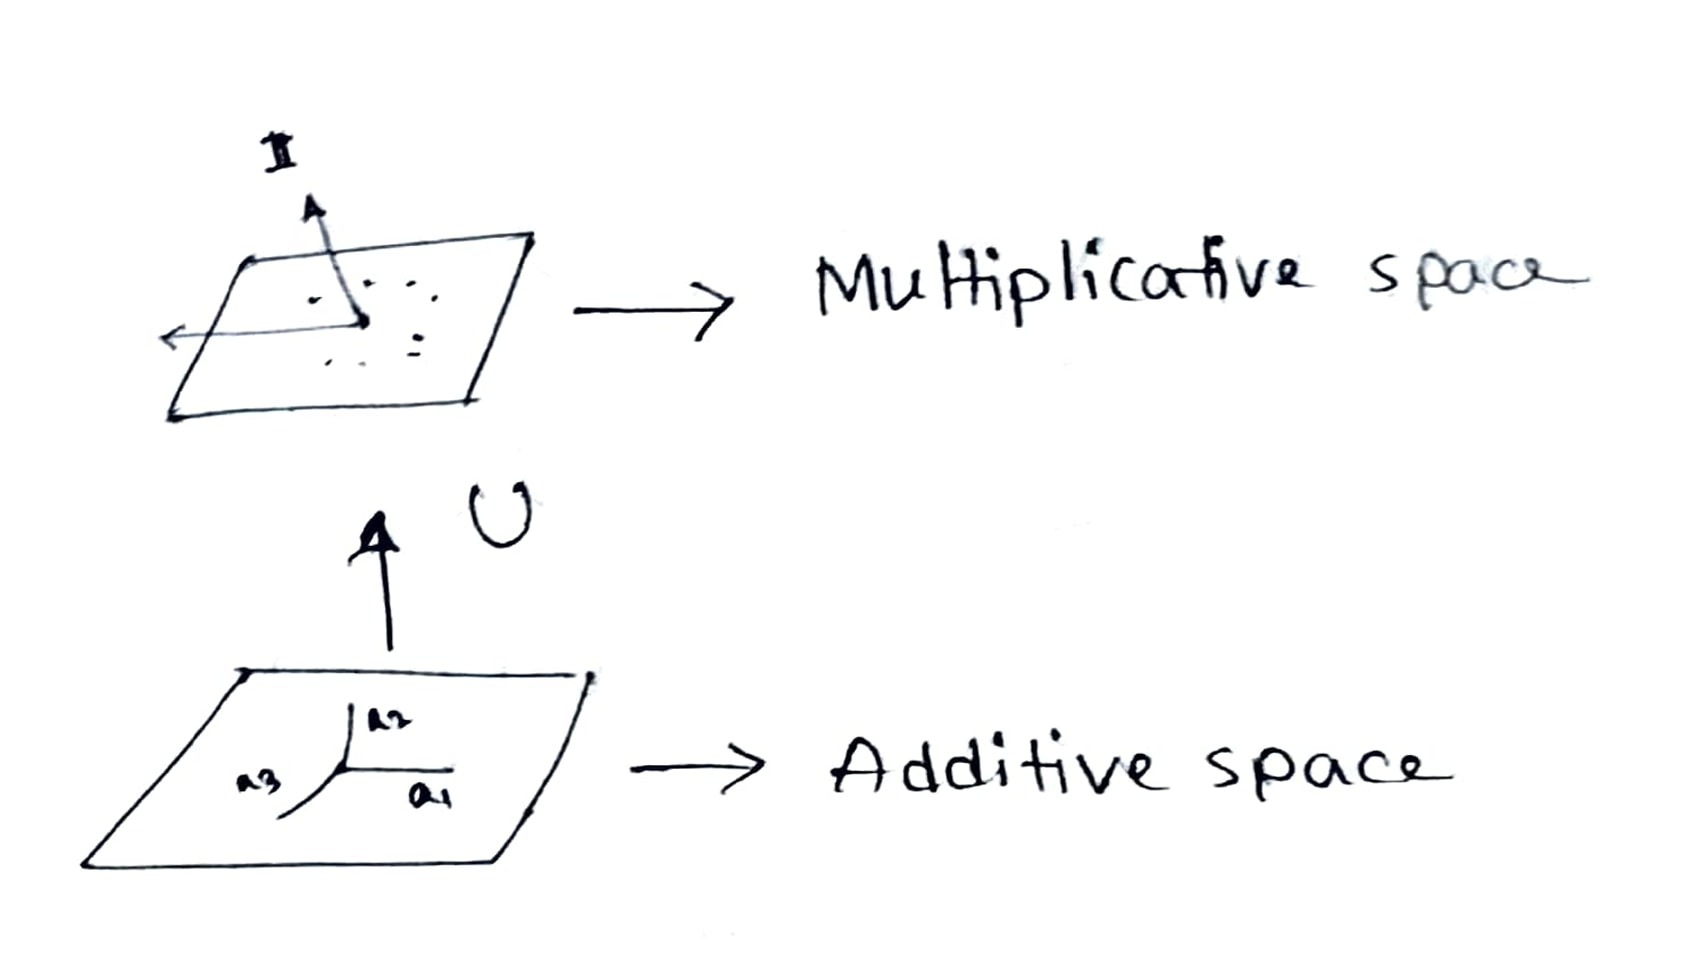 II
Multiplicative space
U
a2
a3
a1
Additive space